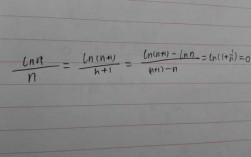 ln n / n = ln(n+1) / n+1 = ln(n+1) - ln n / (n+1) - n = ln(1+1/n) = 0